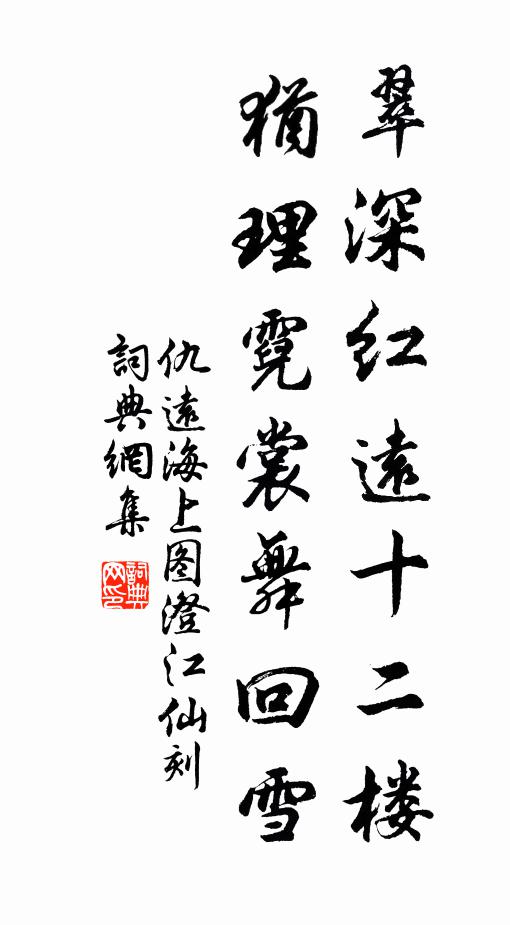 翠深红遠十二楼
猶理霓裳舞回雪
仇遠海上图澄江仙刻
詞典網集
詞典网印